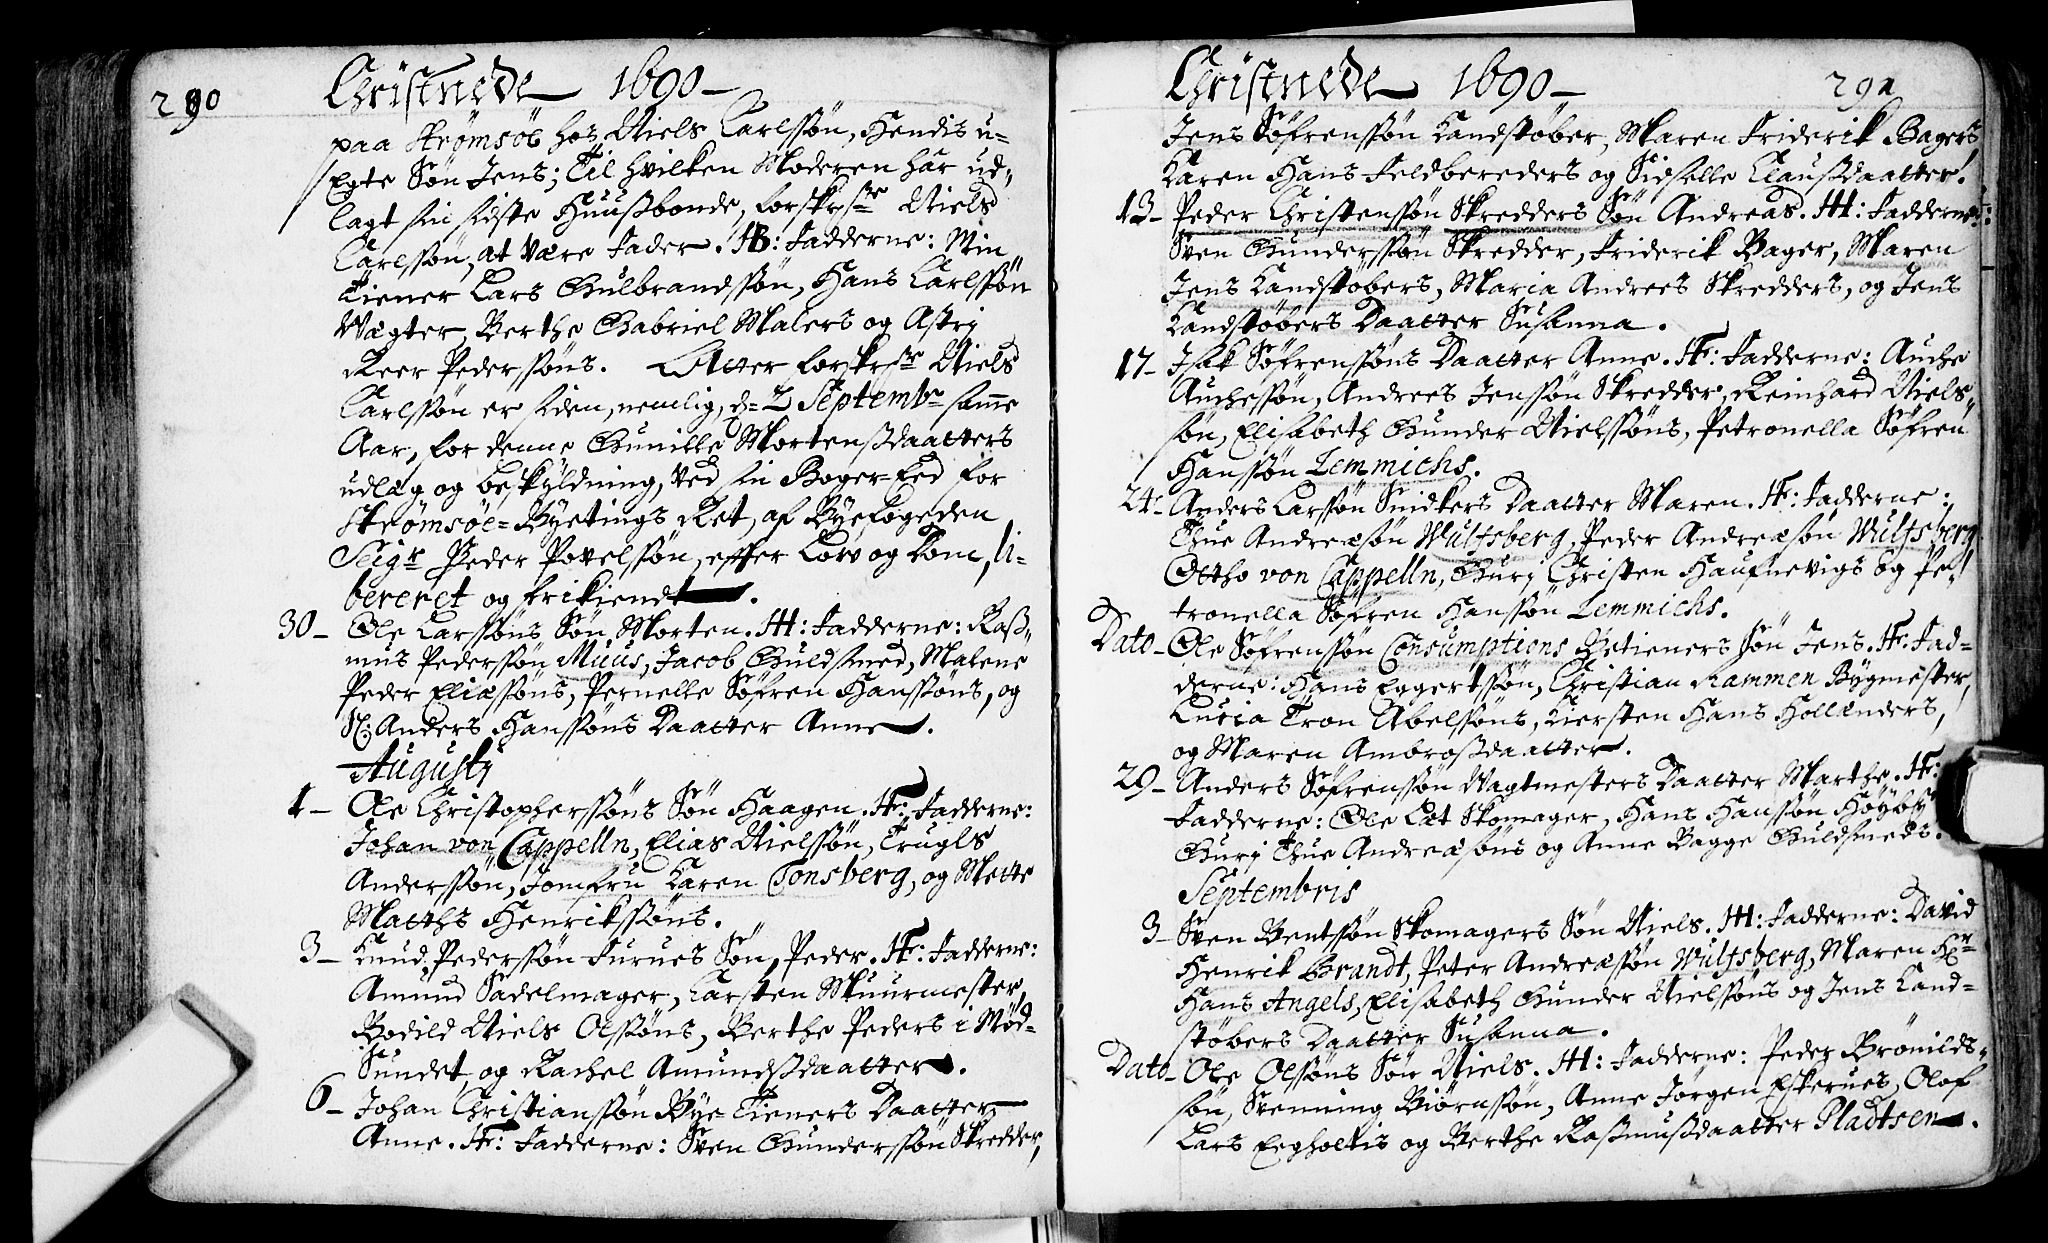 290
Christnede 1690
paa Strømsøe hoz Niels Carlssøn, Hendis u-
Egte Søn Jens; Til hvilken Moderen har ud-
lagt sin sidste Huusbonde, forskrefne Niels
Carlssøn, at være Fader. HB: Fadderne: Min
Tiener Lars Gulbrandssøn, Hans Carlssøn
Wægter, Berthe Gabriel Malers og Astri
Reer Pederssøns. Atter forskrefne Niels
Carlssøn er siden, nemlig, d= 2 Septembr samme
Aar, for denne Gunille Mortensdaatters
udlæg og beskyldning, ved sin Boger-Eed for
Strømsøe-Byetings Ret, af Byefogeden
Seigr Peder Povelssøn, efter Lov og Dom, li-
bereret og frikiendt.
30 - Ole Larssøns Søn Morten. HH: Fadderne: Raß-
mus Pederssøn Muus, Jacob Guldsmed, Malene
Peder Eliæssøns, Pernelle Søfren Hanssøns, og
Sl: Anders Hanssøns Daatter Anne.
Augustj
1 - Ole Christopherssøns Søn Haagen. Hr: Fadderne:
Johan von Cappelln, Elias Nielssøn, Trugls
Anderssøn, Jomfru Karen Tonsberg, og Mette
Matths Henrikssøns.
3 - Knud Pederssøn Furues Søn, Peder. Hr: Fadderne:
Amund Sadelmager, Carsten Muurmester,
Bodild Niels Olssøns, Berthe Peders i Mød-
Sundet, og Rachel Amundsdaatter.
6 - Johan Christianssøn Bye-Tieners Daatter
Anne. Hr: Fadderne: Sven Gunderssøn Skredder,
Christnede 1690
291
Jens Søfrenssøn Kandstøber, Maren Friderik Bagers
Karen Hans Feldbereders og Sidselle Clausdaatter.
13 - Peder Christenssøn Skredders Søn Andreas. HH: Fadderne:
Sven Gunderssøn Skredder, Friderik Bager, Maren
Jens Kandstøbers, Maria Andrees Skredders, og Jens
Kandstøbers Daatter Susanna.
17 - Isak Søfrenssøns Daatter Anne. Hr: Fadderne: Auche
Auchessøn, Andrees Jenssøn Skredder, Reinhard Niels-
søn, Elisabeth Gunder Nielssøns, Petronella Søfren
Hanssøn Lemmichs.
24 - Anders Larssøn Snidkers Daatter Maren. Hr: Fadderne:
Thue Andreæsøn Wulfsberg, Peder Andreæsøn Wulfsberg
Ottho von Cappelln, Gurj Christen Haufnevigs og Pe-
tronella Søfren Hanssøn Lemmichs.
Dato - Ole Søfrenssøn Consumptions Betieners Søn Jens. Hr. Fad-
derne: Hans Eggertssøn, Christian Rammen Bygmester,
Lucia Tron Abelssøns, Kiersten Hans Hollænders,
og Maren Ambrosdaatter.
29 - Anders Søfrenssøn Wagtmesters Daatter Marthe. Hr:
Fadderne: Ole Løt Skomager, Hans Hanssøn Høyby
Gurj Thue Andreæsøns og Anne Bagge Guldsmeds.
Septembris
3 - Sven Bentssøn Skomagers Søn Niels. HH: Fadderne: David
Henrik Brandt, Peter Andreæssøn Wulfsberg, Maren Hr
Hans Angels, Elisabeth Gunder Nielssøns og Jens Kand-
støbers Daatter Susanna.
Dato - Ole Olssøns Søn Niels. HH: Fadderne: Peder Brønilds-
søn, Svenning Biørnssøn, Anne Jørgen Eskerues, Olof
Lars Eegholtis og Berthe Rasmusdaatter Pladtsen.